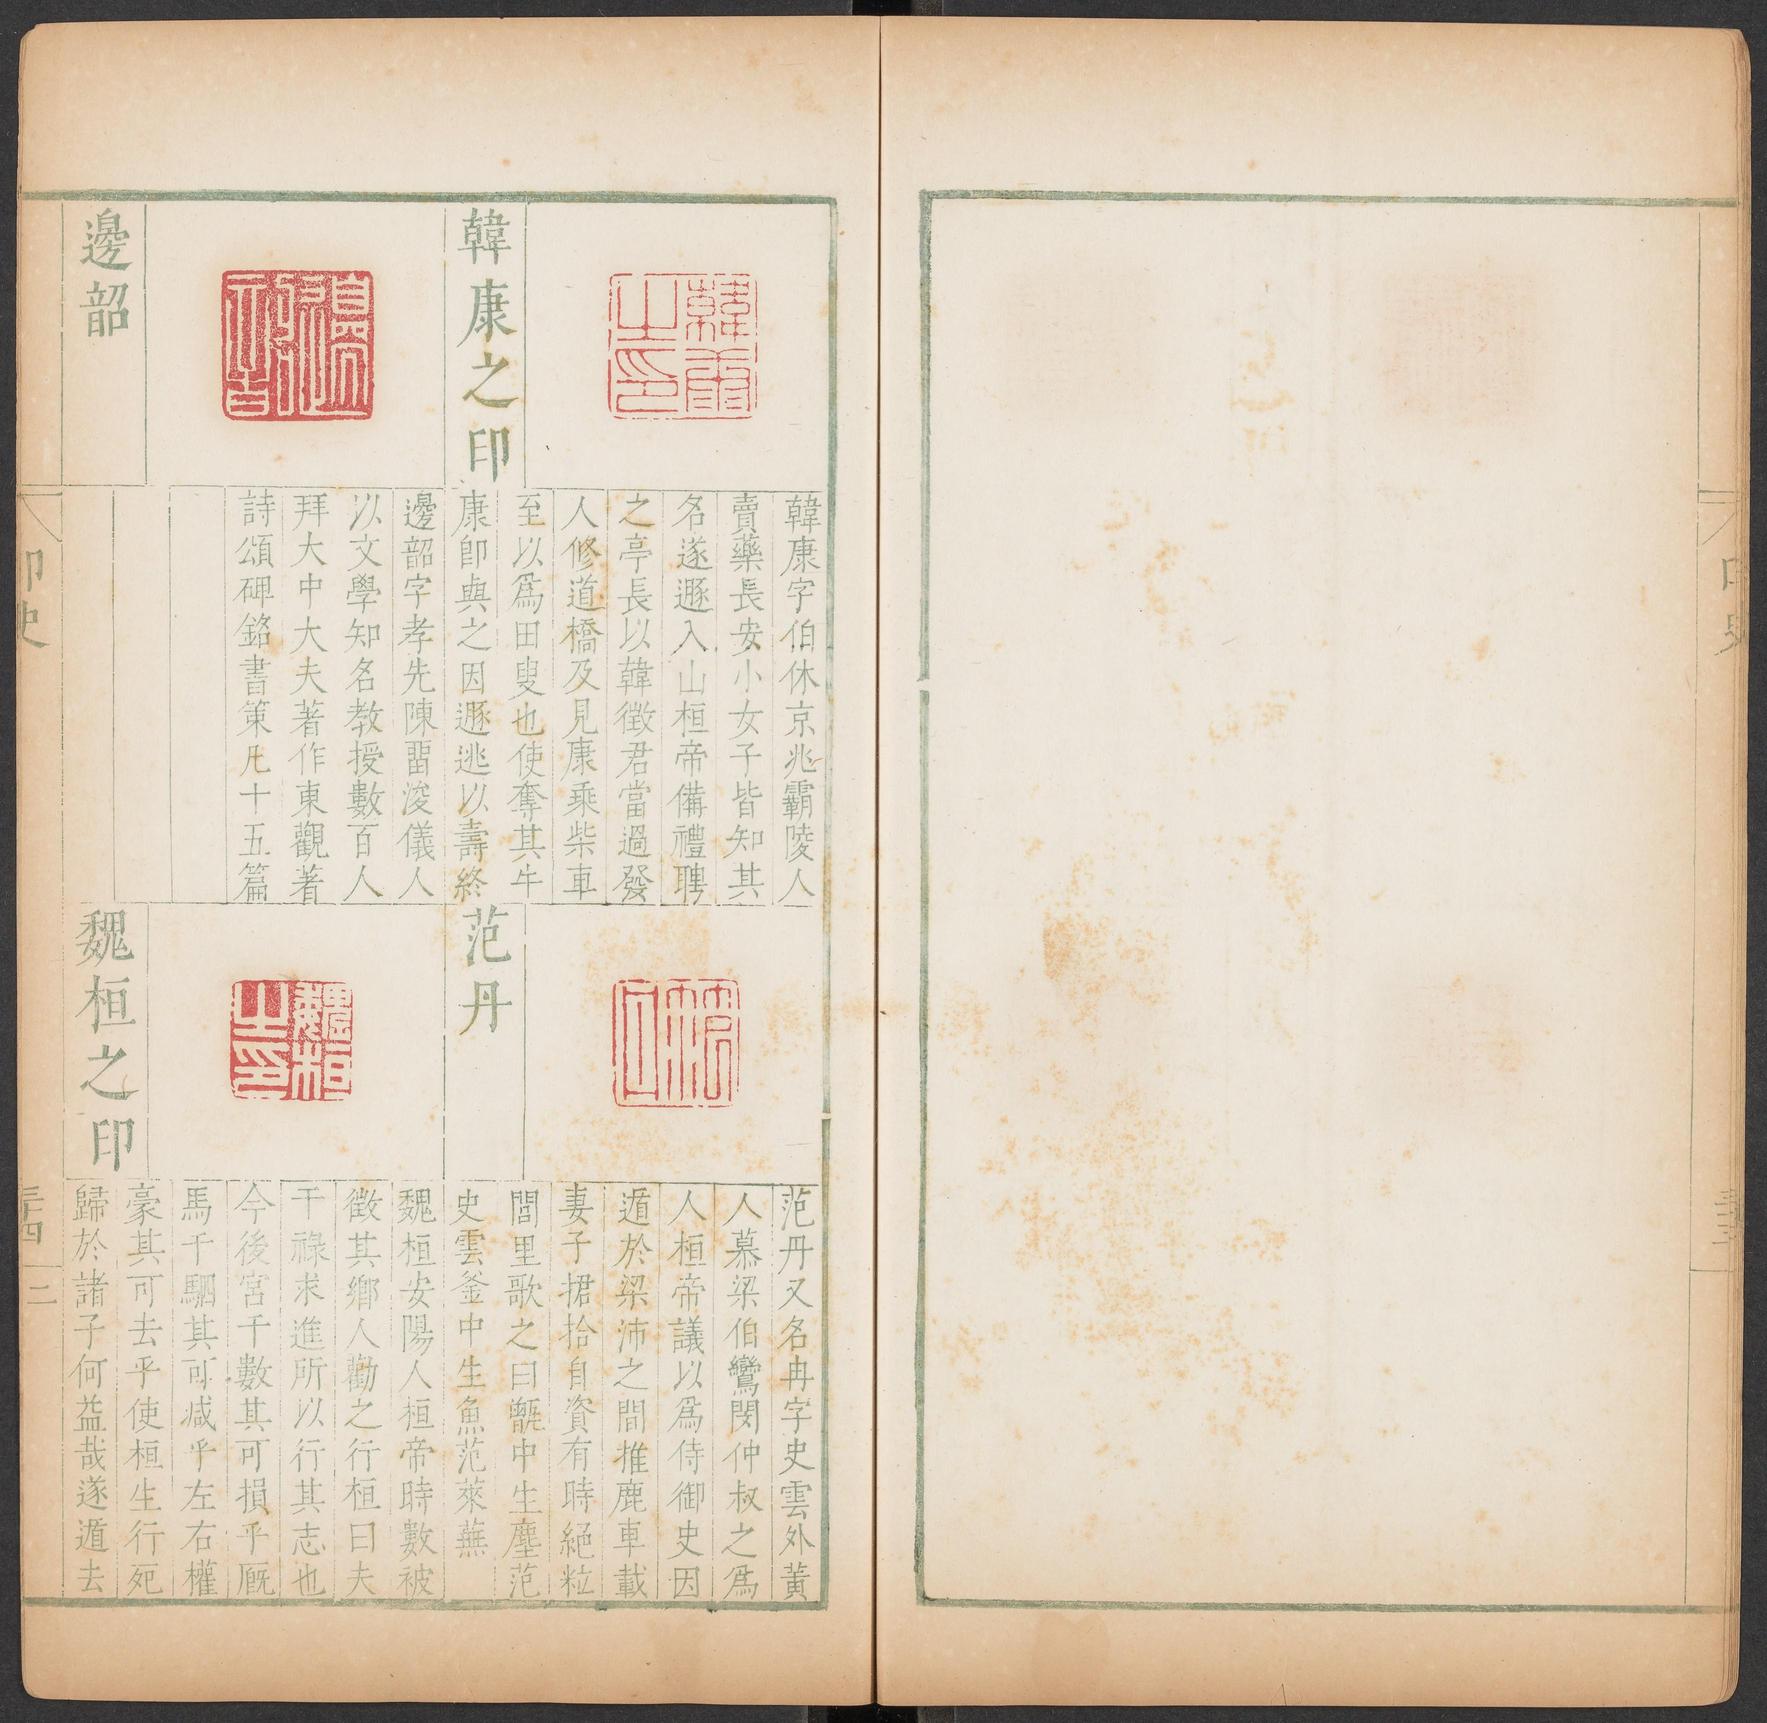 韓康之印
韓康字伯休京兆霸陵人
賣藥長安小女子皆知其
名遂遯入山桓帝備禮聘
之亭長以韓徵君當過發
人修道橋及見康乘柴車
至以爲田叟也使奪其牛
康卽與之因遯逃以壽終
邊韶
邊韶字孝先陳畱浚儀人
以文學知名教授數百人
拜大中大夫著作東觀著
詩頌碑銘書策凡十五篇
范丹
范丹又名冉字史雲外黃
人慕梁伯鸞閔仲叔之爲
人桓帝議以爲侍御史因
遁於梁沛之間推鹿車載
妻子捃拾自資有時絕粒
閭里歌之曰甑中生塵范
史雲釜中生魚范萊蕪
魏桓之印
魏桓安陽人桓帝時數被
徵其鄉人勸之行桓曰夫
干祿求進所以行其志也
今後宮千數其可損乎廐
馬千駟其可減乎左右權
豪其可去乎使桓生行死
歸於諸子何益哉遂遁去
印史
三十四
二
印史
三十三